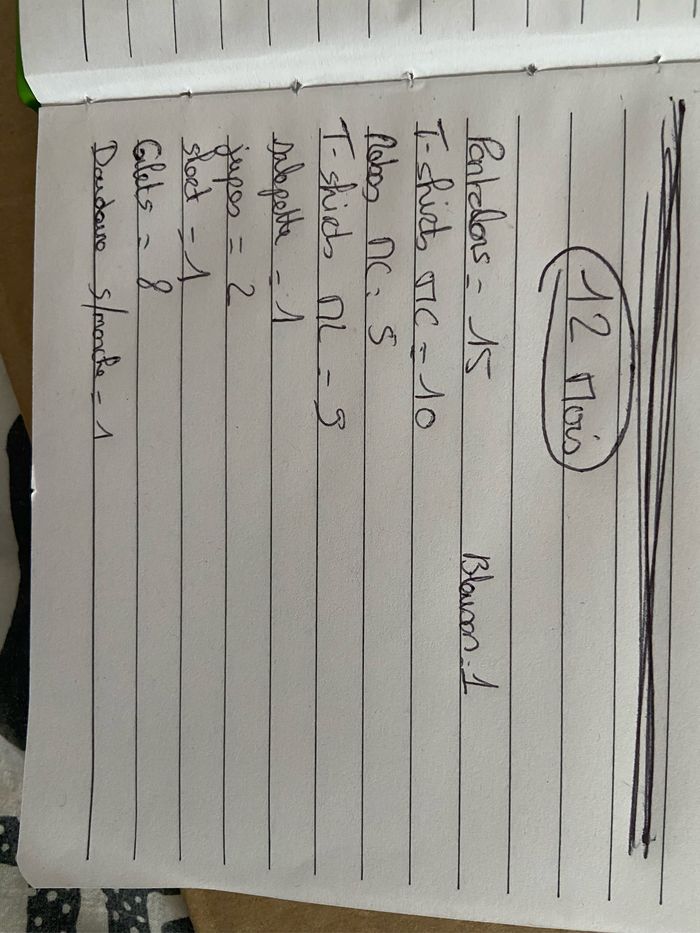 12 Mois
Pantalons = 15 Blouson = 1
T-shirts MC = 10
Robes MC = 5
T-shirts ML = 5
salopette = 1
jupes = 2
short = 1
Gilets = 8
Doudoune s/manche = 1